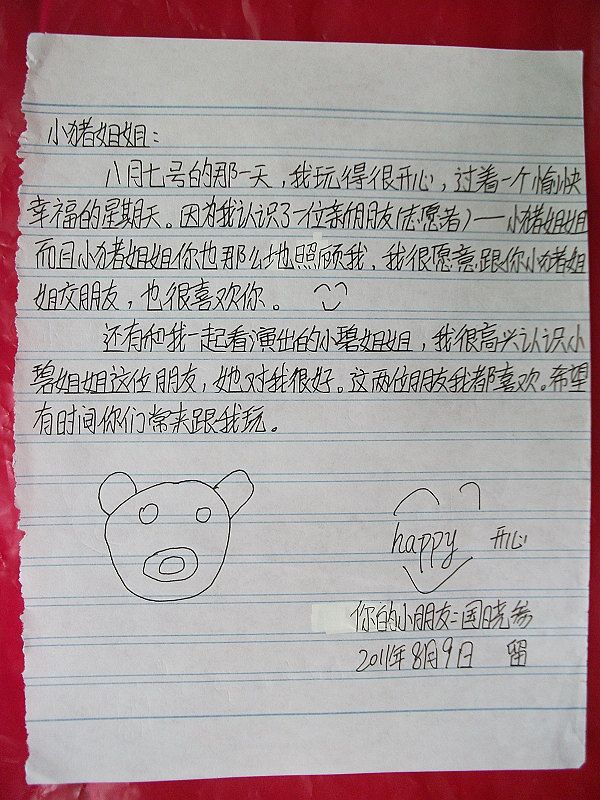 小猪姐姐：
八月七号的那一天，我玩得很开心，过着一个愉快
幸福的星期天。因为我认识了一位亲的朋友(志愿者)——小猪姐姐
而且小猪姐姐你也那么地照顾我，我很愿意跟你小猪姐
姐交朋友，也很喜欢你。
还有和我一起看演出的小碧姐姐，我很高兴认识小
碧姐姐这位朋友，她对我很好。这两位朋友我都喜欢。希望
有时间你们常来跟我玩。
happy 开心
你的小朋友：国晓参
2011年8月9日 留